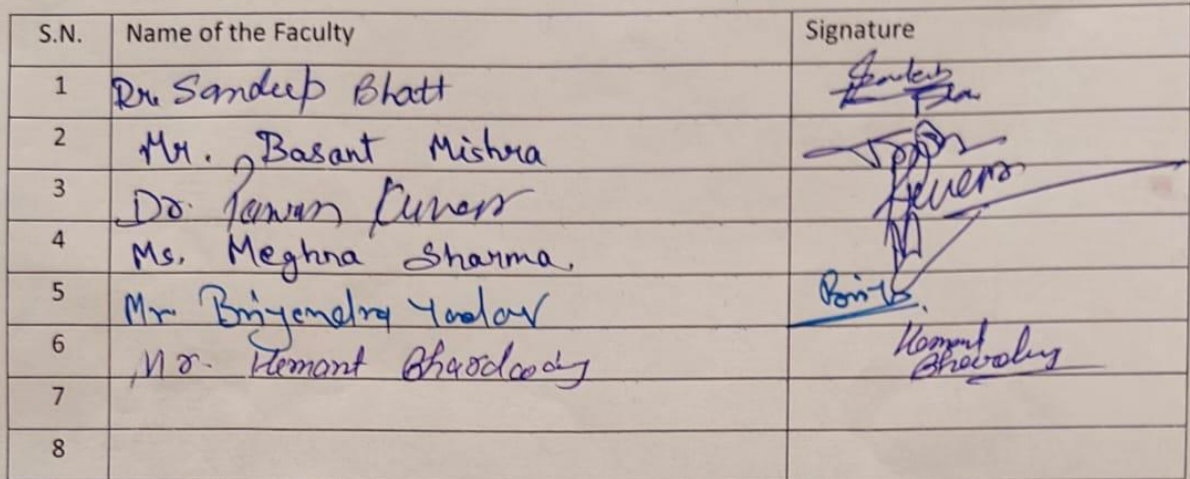 S.N. Name of the Faculty Signature
1 Dr. Sandeep Bhatt Sandeep
2 Mr. Basant Mishra
3 Dr. Pawan Kumar
4 Ms. Meghna Sharma.
5 Mr Brijendra Yadav
6 Mr. Hemant Bhardwaj Hemant
7
8